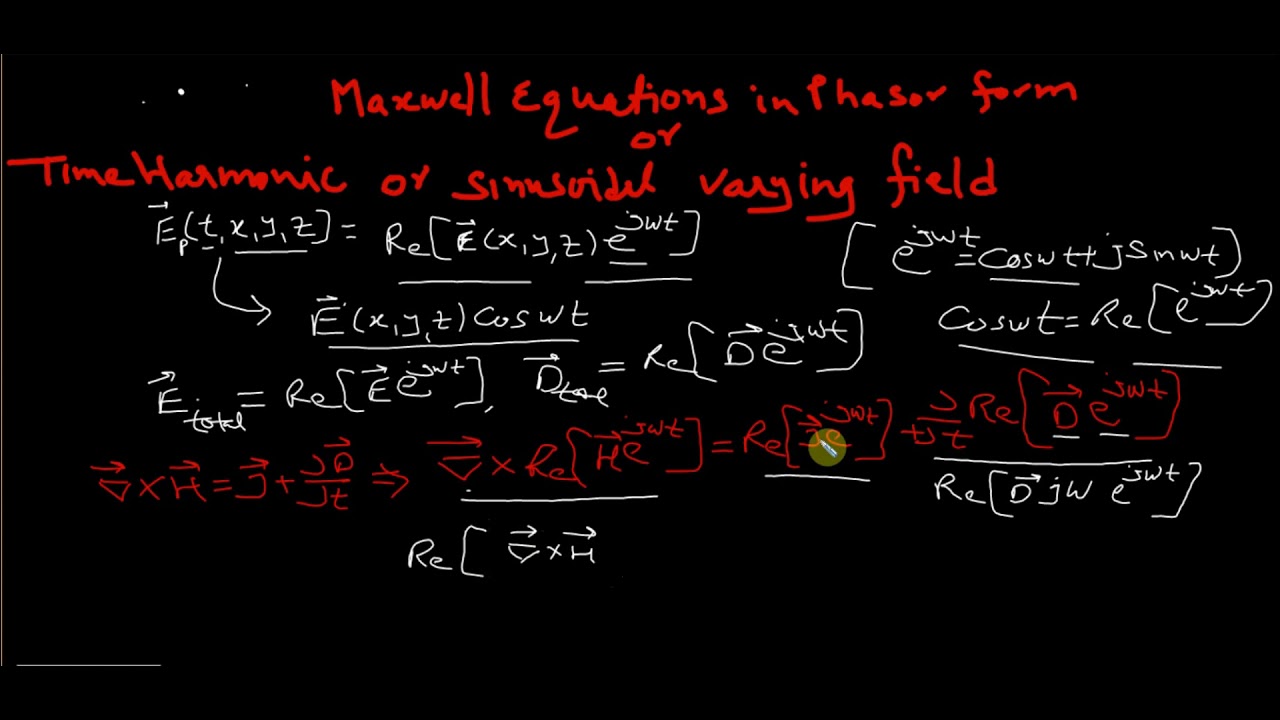 Maxwell Equations in Phasor form
or
Time Harmonic or sinusoidel varying field
E⃗p(t,x,y,z) = Re[E⃗(x,y,z) e^jwt] [e^jwt = Coswt + jSinwt)
E⃗(x,y,z) Coswt Coswt = Re[e^jwt]
E⃗total = Re[E⃗ e^jwt], D⃗total = Re[D⃗ e^jwt]
∇⃗ × H⃗ = J⃗ + ∂D⃗/∂t ⇒ ∇⃗ × Re[H⃗ e^jwt] = Re[J⃗ e^jwt] + ∂/∂t Re[D⃗ e^jwt]
Re[D⃗ jw e^jwt]
Re[ ∇⃗ × H⃗